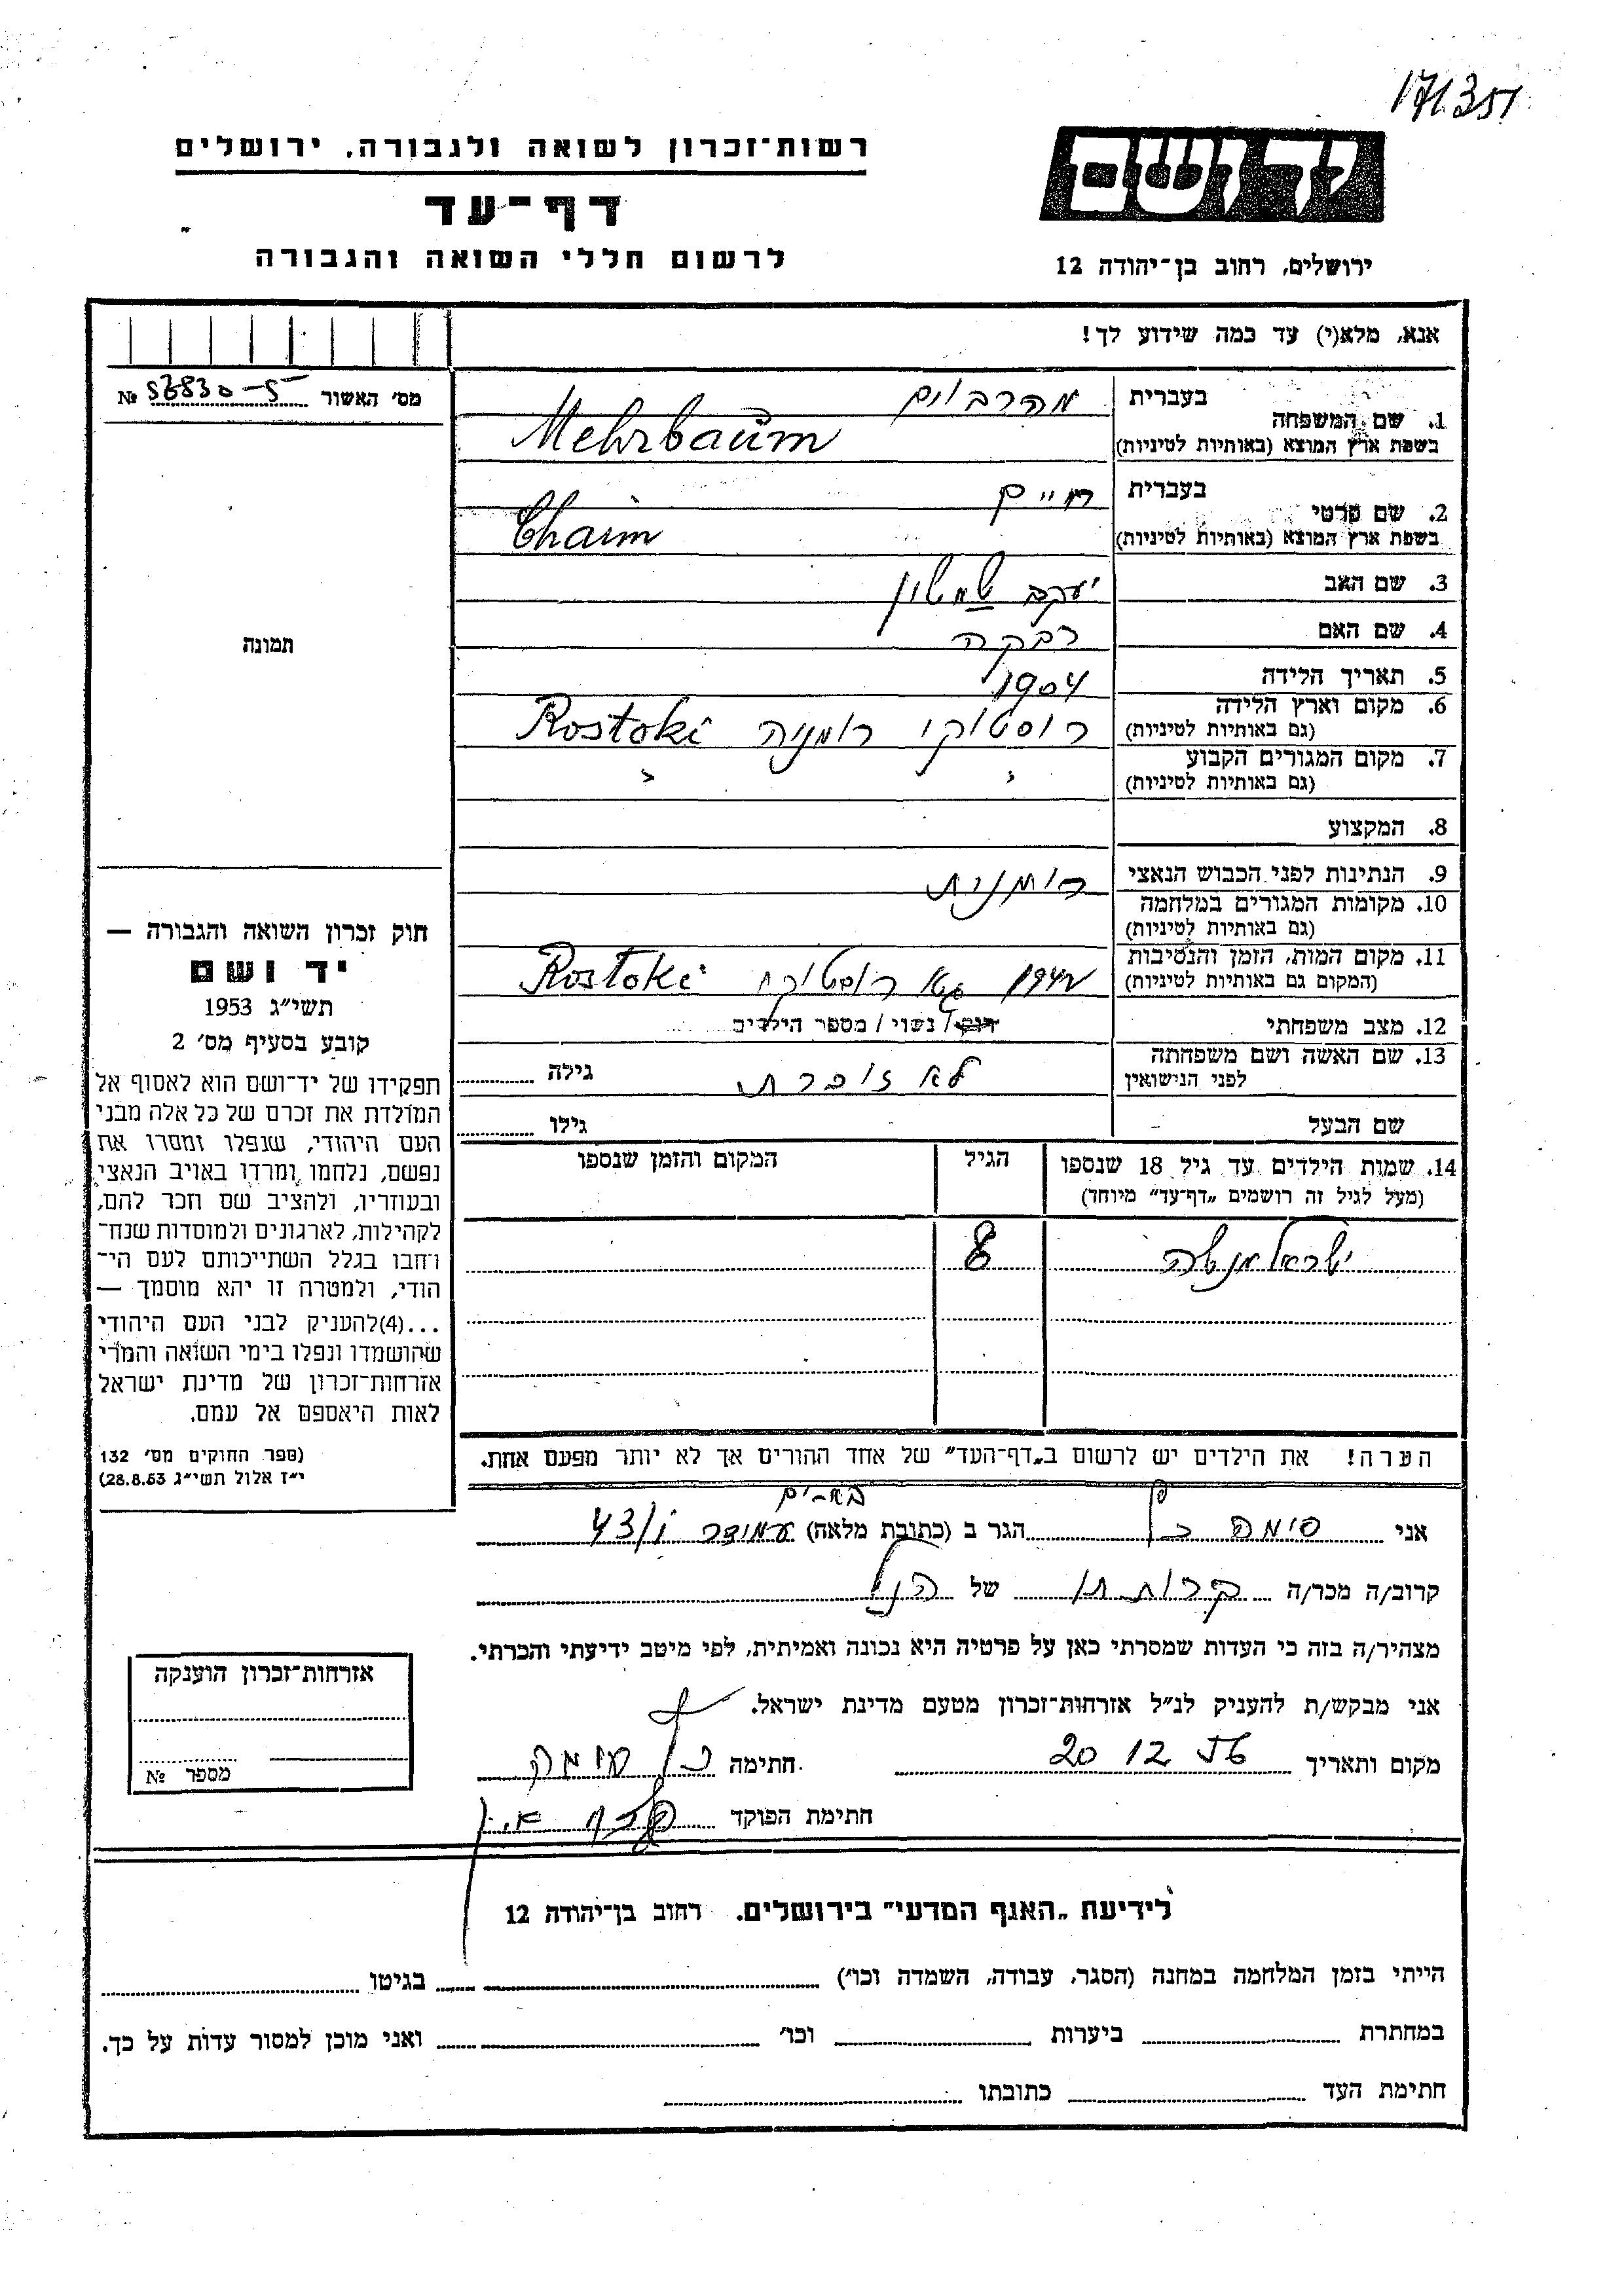 171351
רשות־זכרון לשואה ולגבורה, ירושלים
דף־עד
לרשום חללי השואה והגבורה
יד ושם
ירושלים, רחוב בן־יהודה 12
אנא, מלא(י) עד כמה שידוע לך!
מס׳ האשור № 52830-5
1. שם המשפחה בעברית מהרבוים
בשפת ארץ המוצא (באותיות לטיניות) Mehrbaum
2. שם פרטי בעברית חיים
בשפת ארץ המוצא (באותיות לטיניות) Chaim
3. שם האב יעקב שמשון
4. שם האם רבקה
5. תאריך הלידה 1904
6. מקום וארץ הלידה רוסטוקי רומניה Rostoki
(גם באותיות לטיניות)
7. מקום המגורים הקבוע " "
(גם באותיות לטיניות)
8. המקצוע
9. הנתינות לפני הכבוש הנאצי רומנית
10. מקומות המגורים במלחמה
(גם באותיות לטיניות)
11. מקום המות, הזמן והנסיבות רוסטוקי Rostoki
(המקום גם באותיות לטיניות)
12. מצב משפחתי רווק / נשוי / מספר הילדים
13. שם האשה ושם משפחתה לא זוכרת גילה
לפני הנישואין
שם הבעל - גילו
14. שמות הילדים עד גיל 18 שנספו הגיל המקום והזמן שנספו
(מעל לגיל זה רושמים „דף־עד״ מיוחד)
ישראל מנשה 8
הערה! את הילדים יש לרשום ב„דף־העד״ של אחד ההורים אך לא יותר מפעם אחת.
תמונה
חוק זכרון השואה והגבורה —
יד ושם
תשי״ג 1953
קובע בסעיף מס׳ 2
תפקידו של יד־ושם הוא לאסוף אל
המולדת את זכרם של כל אלה מבני
העם היהודי, שנפלו ומסרו את
נפשם, נלחמו ומרדו באויב הנאצי
ובעוזריו, ולהציב שם וזכר להם,
לקהילות, לארגונים ולמוסדות שנח־
רבו בגלל השתייכותם לעם הי־
הודי, ולמטרה זו יהא מוסמך —
...(4)להעניק לבני העם היהודי
שהושמדו ונפלו בימי השואה והמרי
אזרחות־זכרון של מדינת ישראל
לאות היאספם אל עמם.
(ספר החוקים מס׳ 132
י״ז אלול תשי״ג 28.8.53)
בת-ים
אני סימה כץ הגר ב (כתובת מלאה) עמידר 43/
קרוב/ה מכר/ה של הנ״ל
מצהיר/ה בזה כי העדות שמסרתי כאן על פרטיה היא נכונה ואמיתית, לפי מיטב ידיעתי והכרתי.
אני מבקש/ת להעניק לנ״ל אזרחות־זכרון מטעם מדינת ישראל.
מקום ותאריך 20 12 חתימה כץ
חתימת הפוקד
אזרחות־זכרון הוענקה
מספר №
לידיעת „האגף המדעי״ בירושלים, רחוב בן־יהודה 12
הייתי בזמן המלחמה במחנה (הסגר, עבודה, השמדה וכו׳) בגיטו
במחתרת ביערות וכו׳ ואני מוכן למסור עדות על כך.
חתימת העד כתובתו